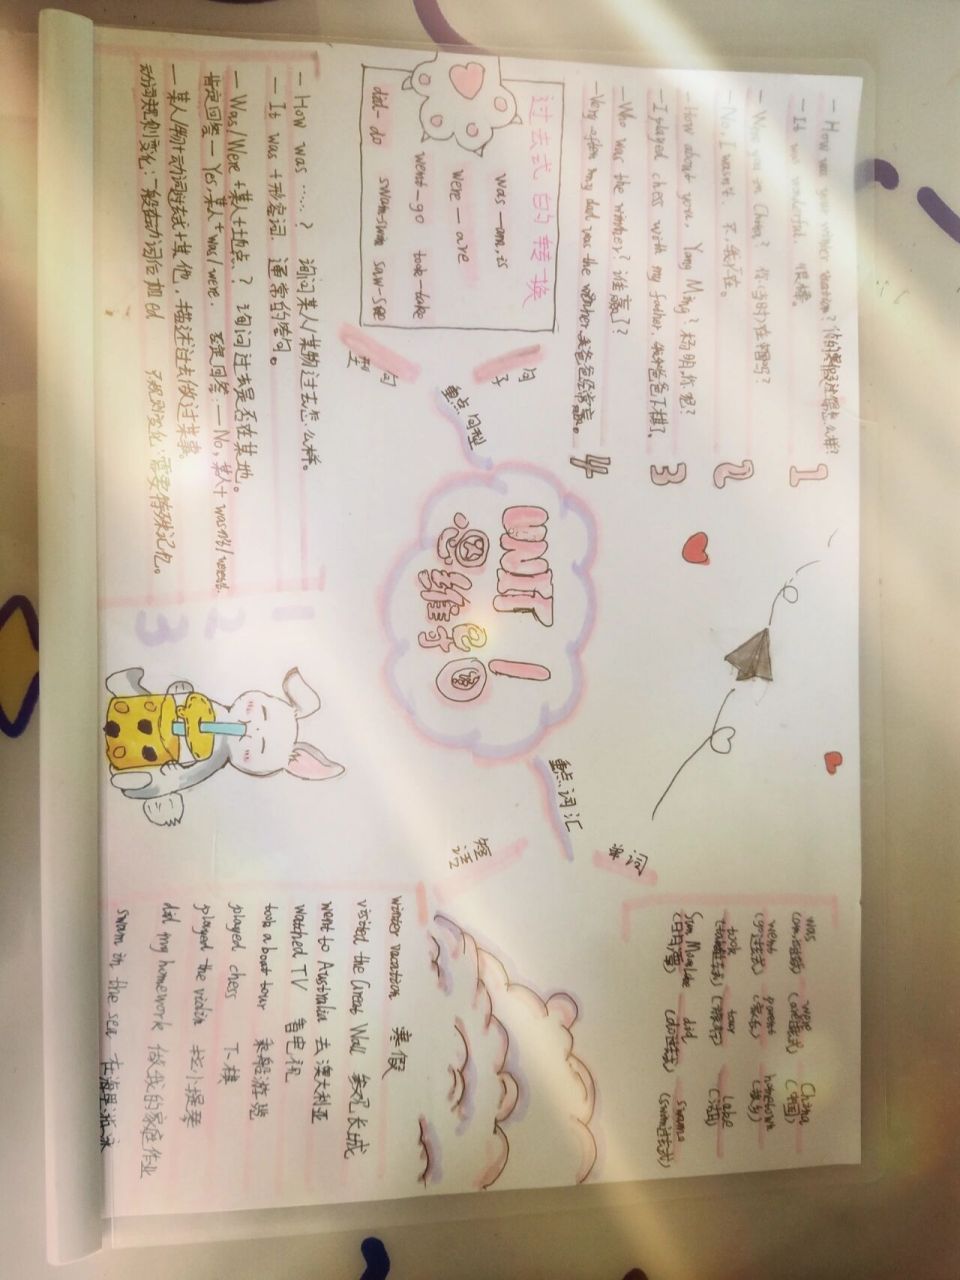 UNIT 1
思维导图
重点句型
句子
- How was your winter vacation? 你的寒假过得怎么样?
- It was wonderful. 很棒。
- Were you in China? 你(当时)在中国吗?
- No, I wasn't. 不,我不在。
- How about you, Yang Ming? 杨明你呢?
- I played chess with my father. 我和爸爸下棋了。
- Who was the winner? 谁赢了?
- Very often my dad was the winner. 爸爸经常赢。
1
2
3
4
过去式的转换
was-am,is
were-are
went-go took-take
did-do swam-swim saw-see
句型
- How was ……? 询问某人/某物过去怎么样。
- It was + 形容词. 通常的答句。
- Was/Were + 某人 + 地点? 询问过去是否在某地。
肯定回答 - Yes, 某人 + was/were. 否定回答: - No, 某人 + wasn't/weren't.
- 某人/物+动词过去式+其他. 描述过去做过某事。
动词规则变化: 一般在动词后加ed 不规则变化: 需要特殊记忆。
1
2
3
重点词汇
单词
was were China
(中国)
went parent hometown
(go过去式) (家长) (故乡)
took tour Labe
did swam
(do过去式) (swim过去式)
短语
winter vacation 寒假
visited the Great Wall 参观长城
went to Australia 去澳大利亚
watched TV 看电视
took a boat tour 乘船游览
played chess 下棋
played the violin 拉小提琴
did my homework 做我的家庭作业
swam in the sea 在海里游泳